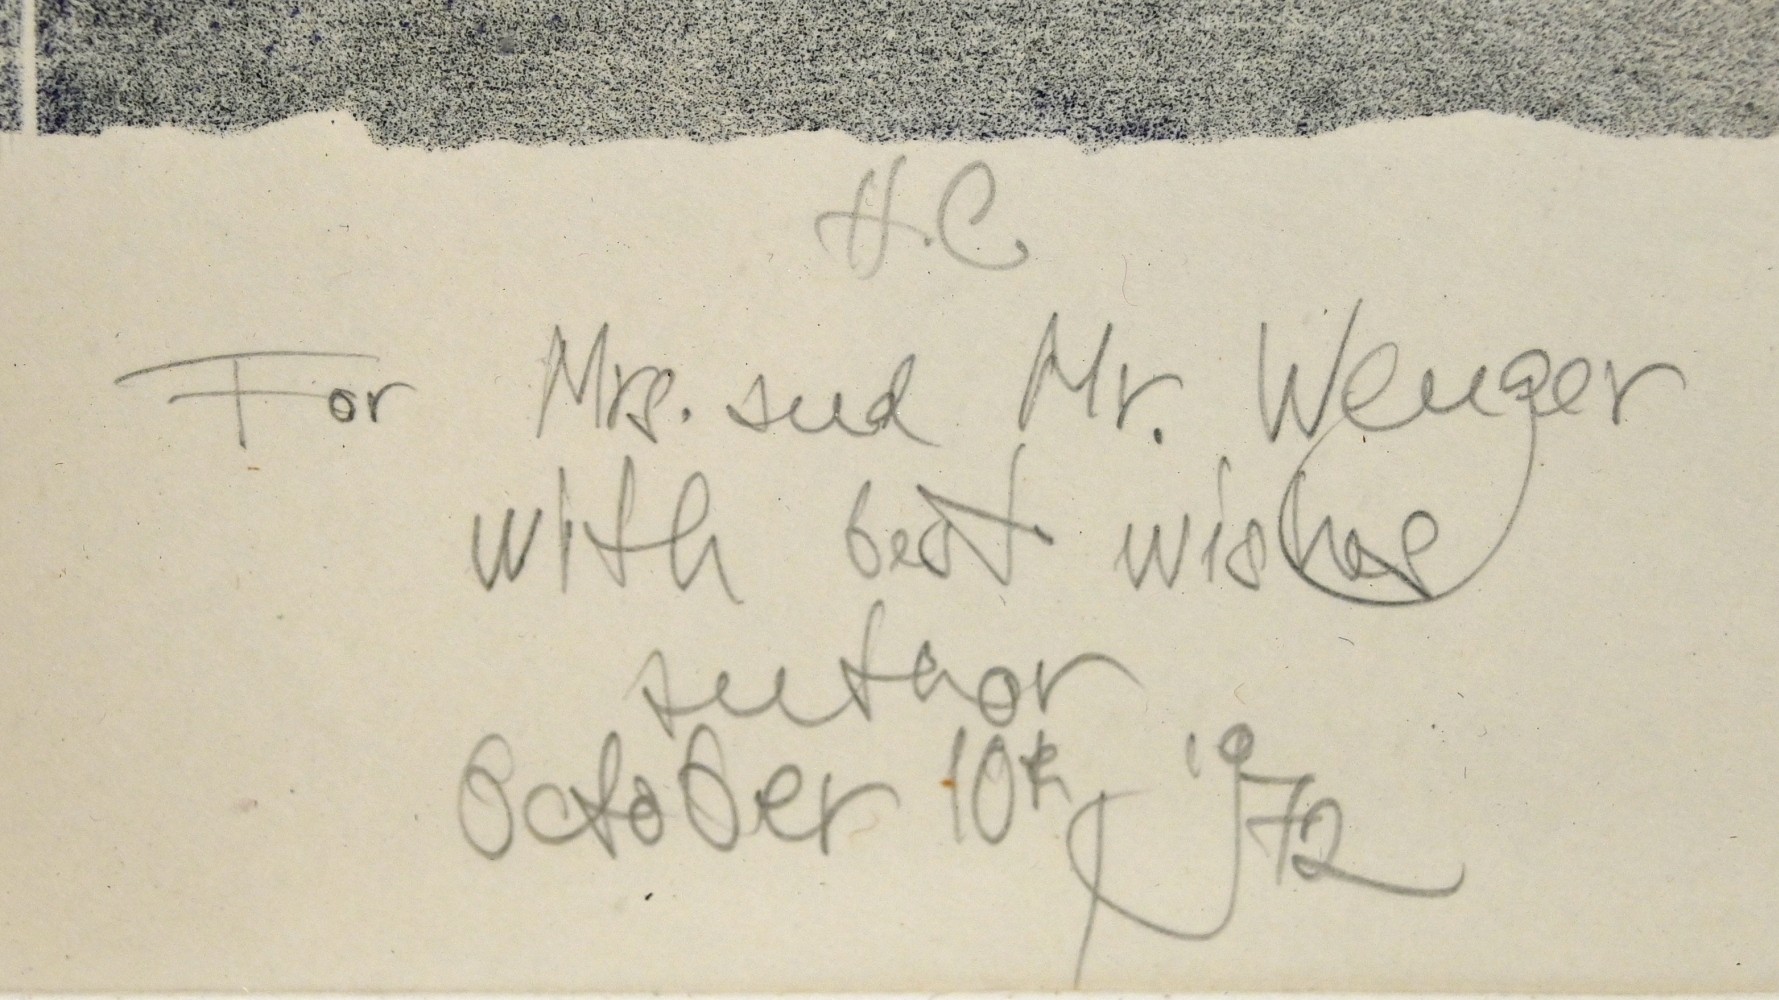 H.C
For Mrs. and Mr. Wenger
with best wishes
author
October 10th, 1972